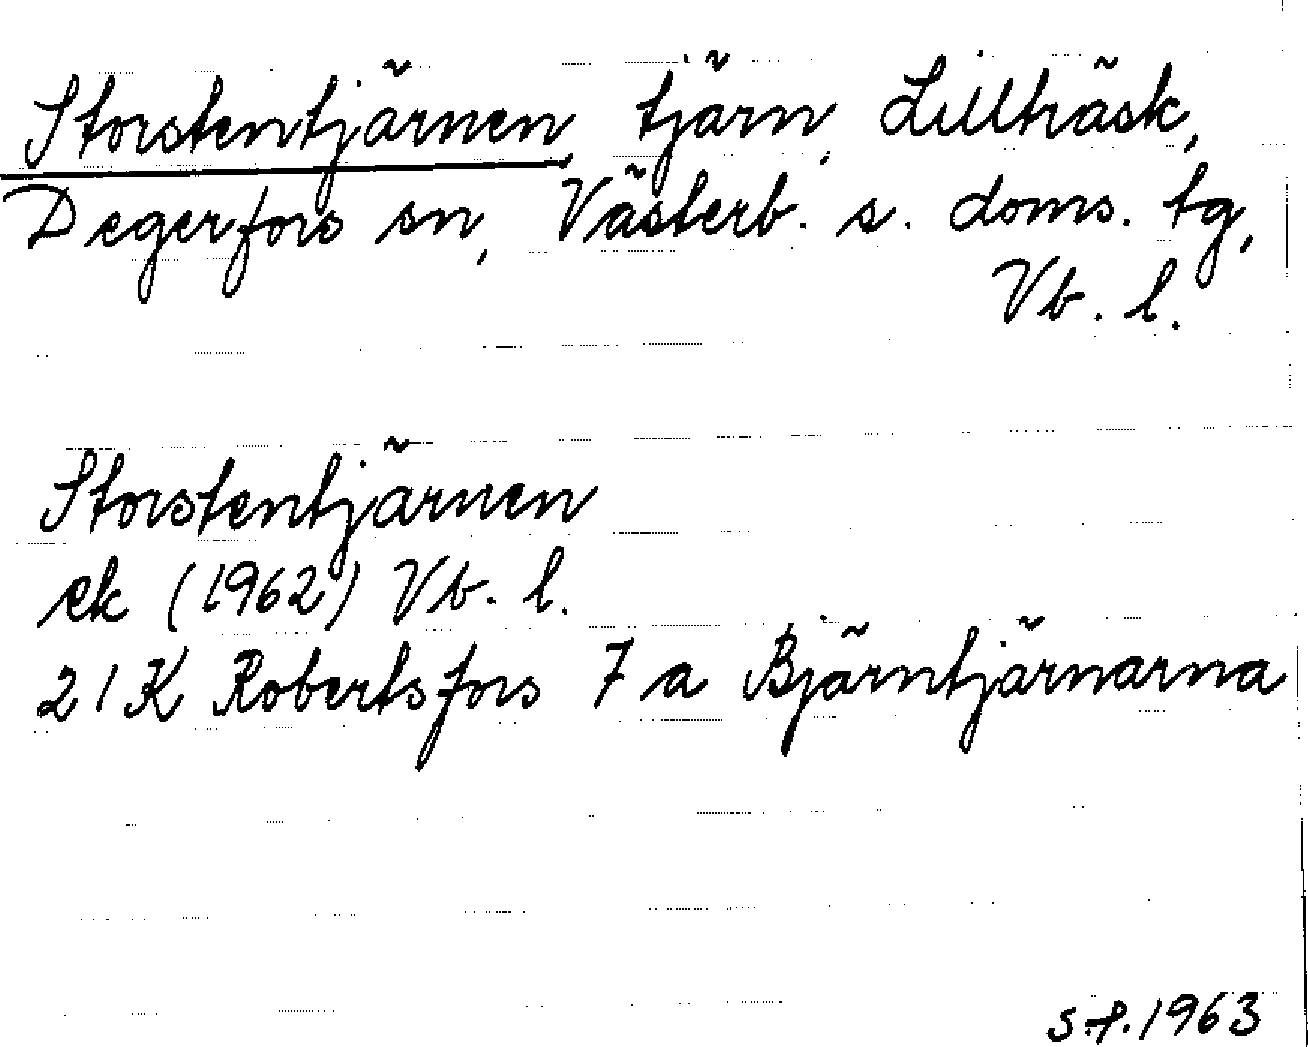 Storstentjärnen, tjärn, Lillträsk,
Degerfors sn, Västerb. s. doms. tg,
Vb. l.
Storstentjärnen
ek (1962) Vb. l.
21K Robertsfors 7 a Björntjärnarna
1963